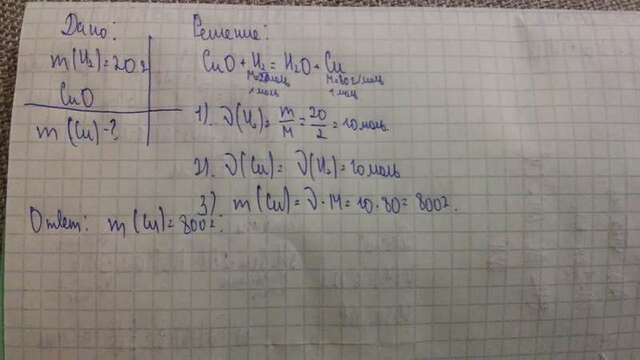 Дано:
m(H₂)=20г
CuO
m(Cu)-?
Решение:
CuO + H₂ = H₂O + Cu
1 моль
M=80г/моль
1 моль
1). ν(H₂)= m/M = 20/2 = 10 моль.
2). ν(Cu)= ν(H₂)=10 моль
3) m(Cu)= ν·M=10·80=800г.
Ответ: m(Cu)=800г.